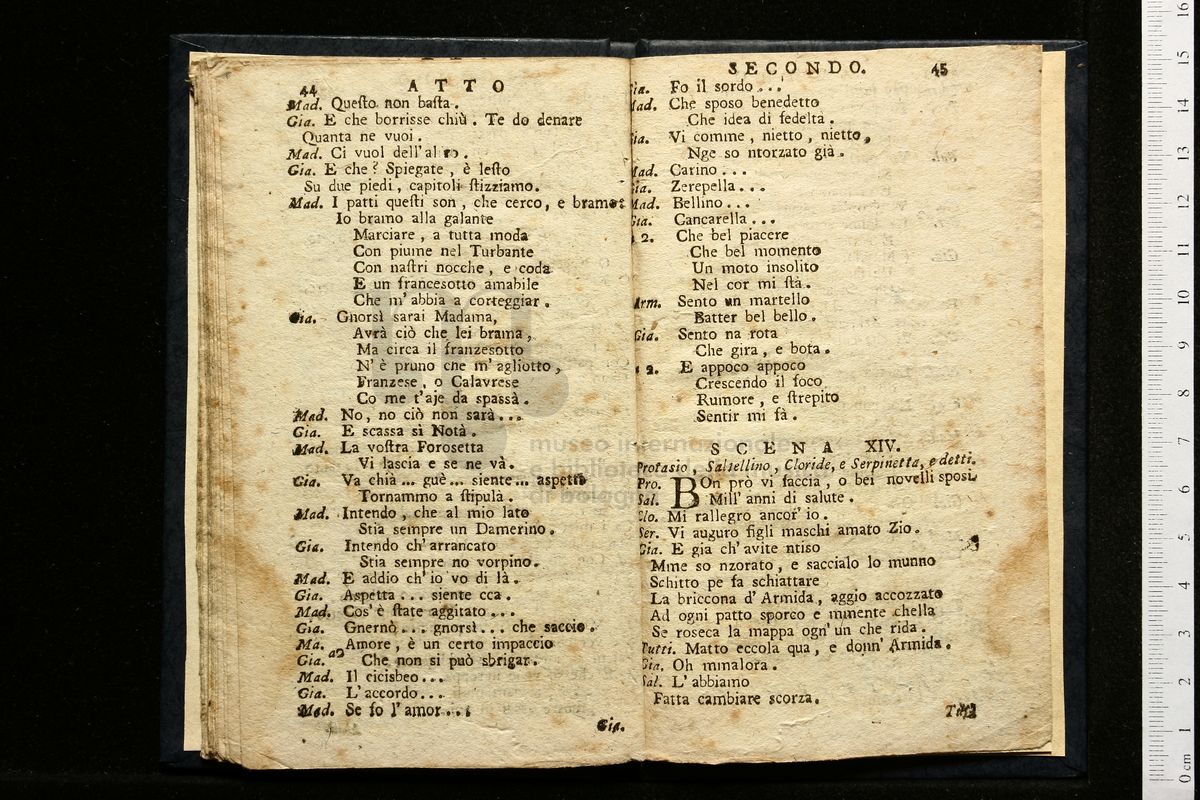 44 ATTO
Mad. Queſto non baſta.
Gia. E che borrisse chiù. Te do denare
Quanta ne vuoi.
Mad. Ci vuol dell' altro.
Gia. E che? Spiegate, è leſto
Su due piedi, capitoli ſtizziamo.
Mad. I patti queſti son, che cerco, e bramo:
Io bramo alla galante
Marciare, a tutta moda
Con piume nel Turbante
Con naſtri nocche, e coda
E un francesotto amabile
Che m' abbia a corteggiar.
Gia. Gnorsì sarai Madama,
Avrà ciò che lei brama,
Ma circa il franzesotto
N' è pruno che m' agliotto,
Franzese, o Calavrese
Co me t'aje da spassà.
Mad. No, no ciò non sarà...
Gia. E scassa sì Notà.
Mad. La voſtra Forosetta
Vi lascia e se ne và.
Gia. Va chià... guè... siente... aspetta
Tornammo a ſtipulà.
Mad. Intendo, che al mio lato
Stia sempre un Damerino.
Gia. Intendo ch' arrancato
Stia sempre no vorpino.
Mad. E addio ch' io vo di là.
Gia. Aspetta... siente cca.
Mad. Cos' è ſtate aggitato...
Gia. Gnernò... gnorsì... che saccio.
Ma. Amore, è un certo impaccio
Gia. a2 Che non si può sbrigar.
Mad. Il cicisbeo...
Gia. L' accordo...
Mad. Se fo l' amor...
Gia.
SECONDO. 45
Gia. Fo il sordo...
Mad. Che sposo benedetto
Che idea di fedeltà.
Gia. Vi comme, nietto, nietto,
Nge so ntorzato già.
Mad. Carino...
Gia. Zerepella...
Mad. Bellino...
Gia. Cancarella...
a 2. Che bel piacere
Che bel momento
Un moto insolito
Nel cor mi ſtà.
Arm. Sento un martello
Batter bel bello.
Gia. Sento na rota
Che gira, e bota.
a 2. E appoco appoco
Crescendo il foco
Rumore, e ſtrepito
Sentir mi fà.
SCENA XIV.
Protasio, Saltellino, Cloride, e Serpinetta, e detti.
Pro. BOn prò vi faccia, o bei novelli sposi.
Sal. Mill' anni di salute.
Clo. Mi rallegro ancor' io.
Ser. Vi auguro figli maschi amato Zio.
Gia. E gia ch' avite ntiso
Mme so nzorato, e saccialo lo munno
Schitto pe fa schiattare
La briccona d' Armida, aggio accozzato
Ad ogni patto sporco e mmente chella
Se roseca la mappa ogn' un che rida.
Tutti. Matto eccola qua, e donn' Armida.
Gia. Oh mmalora.
Sal. L' abbiamo
Fatta cambiare scorza.
museo internazionale
e biblioteca
di bologna